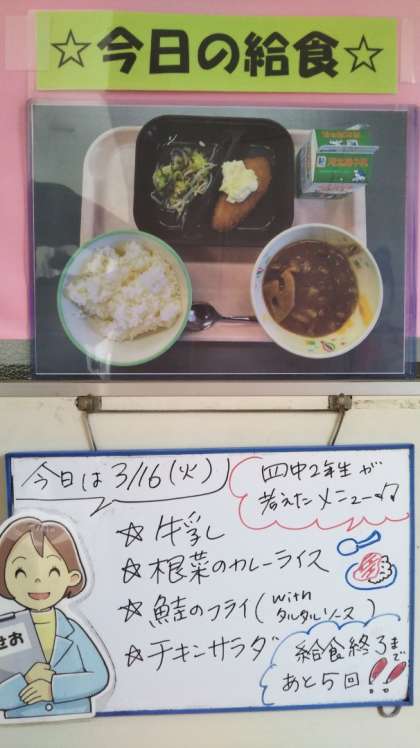 ☆今日の給食☆
今日は3/16(火)
四中2年生が
考えたメニュー☆
☆牛乳
☆根菜のカレーライス
☆鮭のフライ(with タルタルソース)
☆チキンサラダ
給食終了まで
あと5回!!